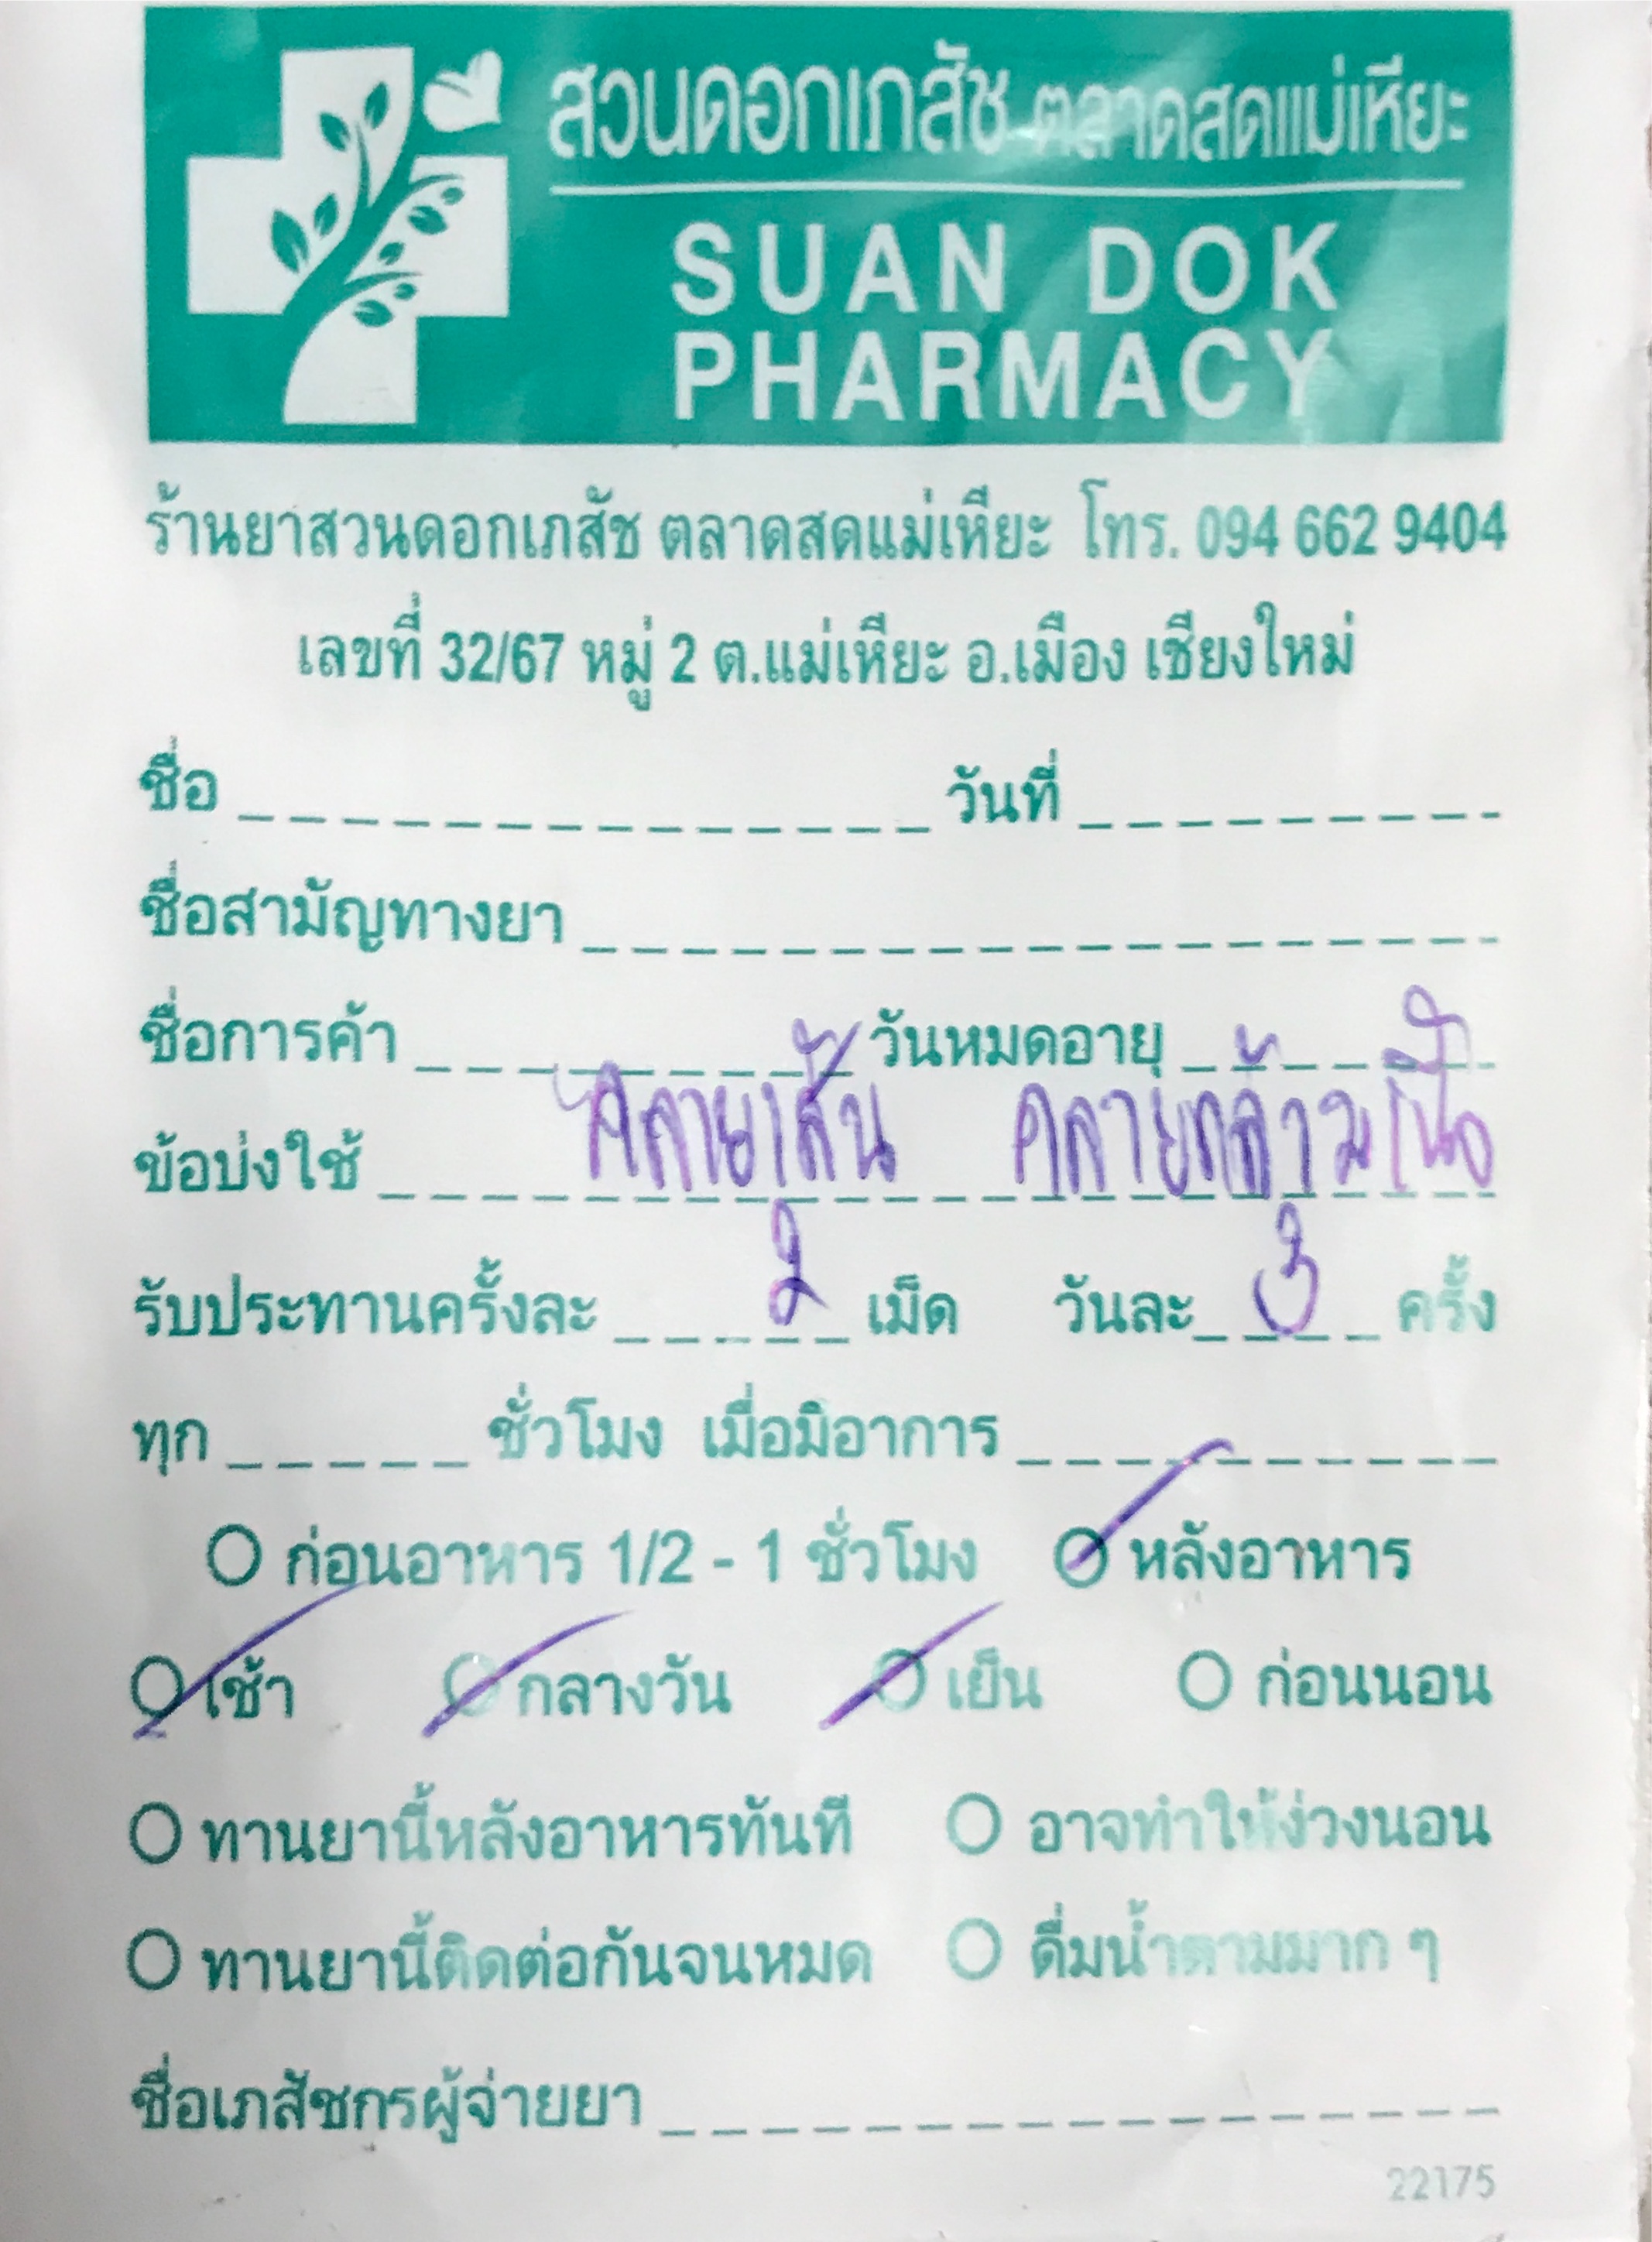 สวนดอกเภสัช ตลาดสดแม่เหียะ
SUAN DOK
PHARMACY
ร้านยาสวนดอกเภสัช ตลาดสดแม่เหียะ โทร. 094 662 9404
เลขที่ 32/67 หมู่ 2 ต.แม่เหียะ อ.เมือง เชียงใหม่
ชื่อ วันที่
ชื่อสามัญทางยา
ชื่อการค้า วันหมดอายุ
ข้อบ่งใช้ คลายเส้น คลายกล้ามเนื้อ
รับประทานครั้งละ 2 เม็ด วันละ 3 ครั้ง
ทุก ชั่วโมง เมื่อมีอาการ
ก่อนอาหาร 1/2 - 1 ชั่วโมง หลังอาหาร
เช้า กลางวัน เย็น ก่อนนอน
ทานยานี้หลังอาหารทันที อาจทำให้ง่วงนอน
ทานยานี้ติดต่อกันจนหมด ดื่มน้ำตามมาก ๆ
ชื่อเภสัชกรผู้จ่ายยา
22175